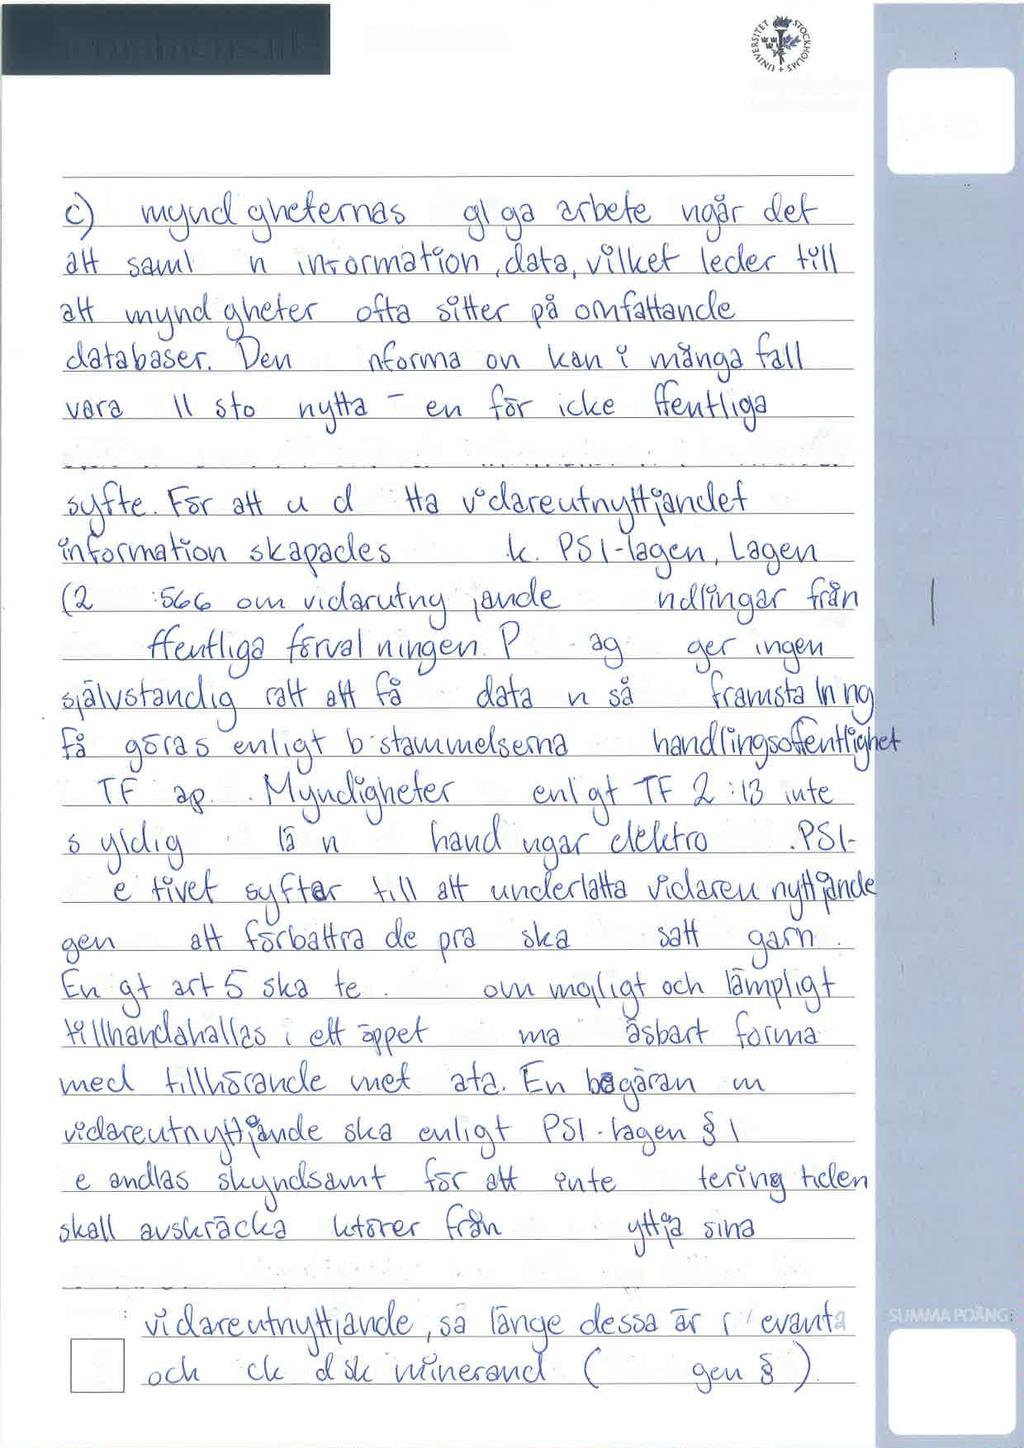 UNIVERSITET STOCKHOLMS
c) mynd gheternas gl ga arbete ngår det
att saml n information, data, vilket leder till
att mynd gheter ofta sitter på omfattande
databaser. Den nforma on kan i många fall
vara ll sto nytta - en för icke ffentliga
syfte. För att u d tta vidareutnyttjandet
information skapades .k. PSI-lagen, Lagen
(2 :566 om vidarutny jande ndlingar från
ffentliga förval ningen. P - ag ger ingen
självstandig ratt att få data n så framsta ln ng
få göras enligt b stammelserna handlingsoffentlighet
TF ap. Myndigheter enl gt TF 2:13 inte
s yldig lä n hand ingar elektro . PSI-
e tivet syftar till att underlatta vidareu nyttjande
gen att förbattra de pra ska satt garn .
En gt art 5 ska te . om mojligt och lämpligt
tillhandahallas i ett öppet ma äsbart forma
med tillhörande met ata. En begäran m
vidareutnyttjande ska enligt PSI-lagen § 1
e andlas skyndsamt för att inte tering tiden
skall avskräcka ktörer från yttja sina
vidareutnyttjande, så länge dessa är r evanta
och ck d sk minerand ( gen § ).
SUMMA POÄNG: